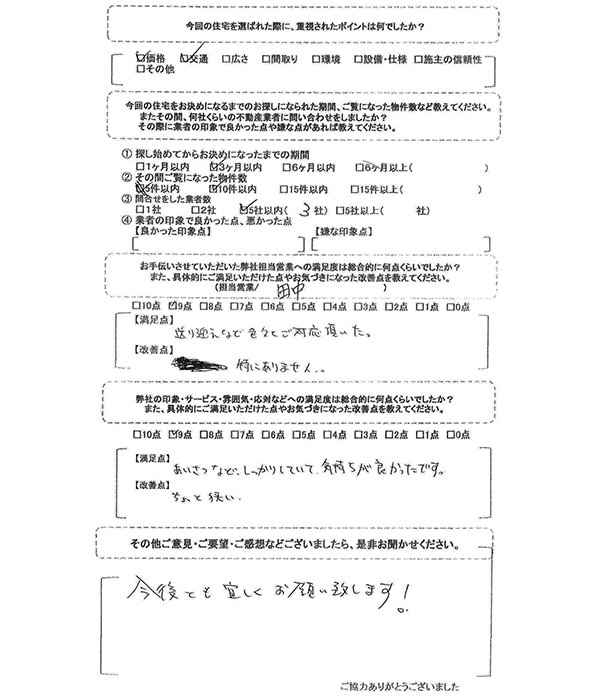 今回の住宅を選ばれた際に、重視されたポイントは何でしたか？
☑価格 ☑交通 □広さ □間取り □環境 □設備・仕様 □施主の信頼性
□その他
今回の住宅をお決めになるまでのお探しになられた期間、ご覧になった物件数など教えてください。
またその間、何社くらいの不動産業者に問い合わせをしましたか？
その際に業者の印象で良かった点や嫌な点があれば教えてください。
① 探し始めてからお決めになったまでの期間
□1ヶ月以内 ☑3ヶ月以内 □6ヶ月以内 □6ヶ月以上( )
② その間ご覧になった物件数
□5件以内 ☑10件以内 □15件以内 □15件以上( )
③ 問合せをした業者数
□1社 □2社 ☑5社以内( 3 社) □5社以上( 社)
④ 業者の印象で良かった点、悪かった点
【良かった印象点】 【嫌な印象点】
お手伝いさせていただいた弊社担当営業への満足度は総合的に何点くらいでしたか？
また、具体的にご満足いただけた点やお気づきになった改善点を教えてください。
(担当営業/ 田中 )
□10点 ☑9点 □8点 □7点 □6点 □5点 □4点 □3点 □2点 □1点 □0点
【満足点】
送り迎えなど色々とご対応頂いた。
【改善点】
特にありません。
弊社の印象・サービス・雰囲気・応対などへの満足度は総合的に何点くらいでしたか？
また、具体的にご満足いただけた点やお気づきになった改善点を教えてください。
□10点 ☑9点 □8点 □7点 □6点 □5点 □4点 □3点 □2点 □1点 □0点
【満足点】
あいさつなど、しっかりしていて、気持ちが良かったです。
【改善点】
ちょっと狭い
その他ご意見・ご要望・ご感想などございましたら、是非お聞かせください。
今後とも宜しくお願い致します！
ご協力ありがとうございました